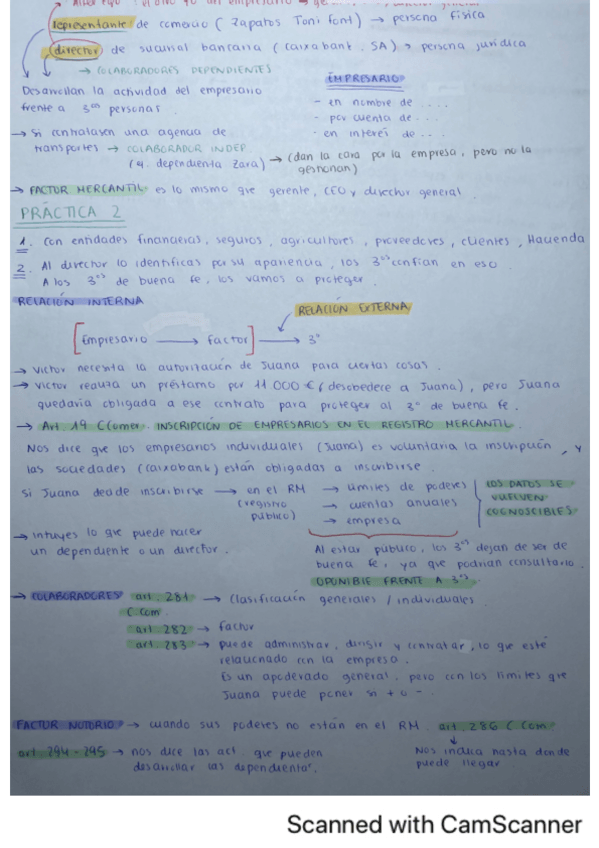 representante de comercio ( Zapatos Toni font) → persona física
director de sucursal bancaria ( caixabank, SA) → persona jurídica
→ COLABORADORES DEPENDIENTES
Desarrollan la actividad del empresario
frente a 3ᵒˢ personas.
EMPRESARIO
- en nombre de ....
- por cuenta de ...
- en interés de ...
→ Si contratasen una agencia de
transportes → COLABORADOR INDEP
(ej. dependienta Zara) → (dan la cara por la empresa, pero no la
gestionan)
→ FACTOR MERCANTIL es lo mismo que gerente, CEO y director general.
PRÁCTICA 2
1. Con entidades financieras, seguros, agricultores, proveedores, clientes, Hacienda
2. Al director lo identificas por su apariencia, los 3ᵒˢ confían en eso.
A los 3ᵒˢ de buena fe, los vamos a proteger.
RELACIÓN INTERNA
RELACIÓN EXTERNA
[Empresario → factor] → 3º
→ Victor necesita la autorización de Juana para ciertas cosas.
→ Victor realiza un préstamo por 11 000 € (desobedece a Juana), pero Juana
quedaría obligada a ese contrato para proteger al 3º de buena fe.
→ Art. 19 CComer. INSCRIPCIÓN DE EMPRESARIOS EN EL REGISTRO MERCANTIL.
Nos dice que los empresarios individuales (Juana) es voluntaria la inscripción, y
las sociedades (caixabank) están obligadas a inscribirse.
Si Juana decide inscribirse → en el RM
(registro
público)
→ límites de poderes
→ cuentas anuales
→ empresa
LOS DATOS SE
VUELVEN
COGNOSCIBLES
→ Intuyes lo que puede hacer
un dependiente o un director.
Al estar público, los 3ᵒˢ dejan de ser de
buena fe, ya que podrían consultarlo.
OPONIBLE FRENTE A 3ᵒˢ
→ COLABORADORES art. 281 → Clasificación generales / individuales
C.Com.
art. 282 → factor
art. 283 → puede administrar, dirigir y contratar, lo que esté
relacionado con la empresa.
Es un apoderado general, pero con los límites que
Juana puede poner si + o -.
FACTOR NOTORIO → cuando sus poderes no están en el RM art. 286 C Com.
art. 294-295 → nos dice las act. que pueden
desarrollar las dependientas.
Nos indica hasta donde
puede llegar
Scanned with CamScanner